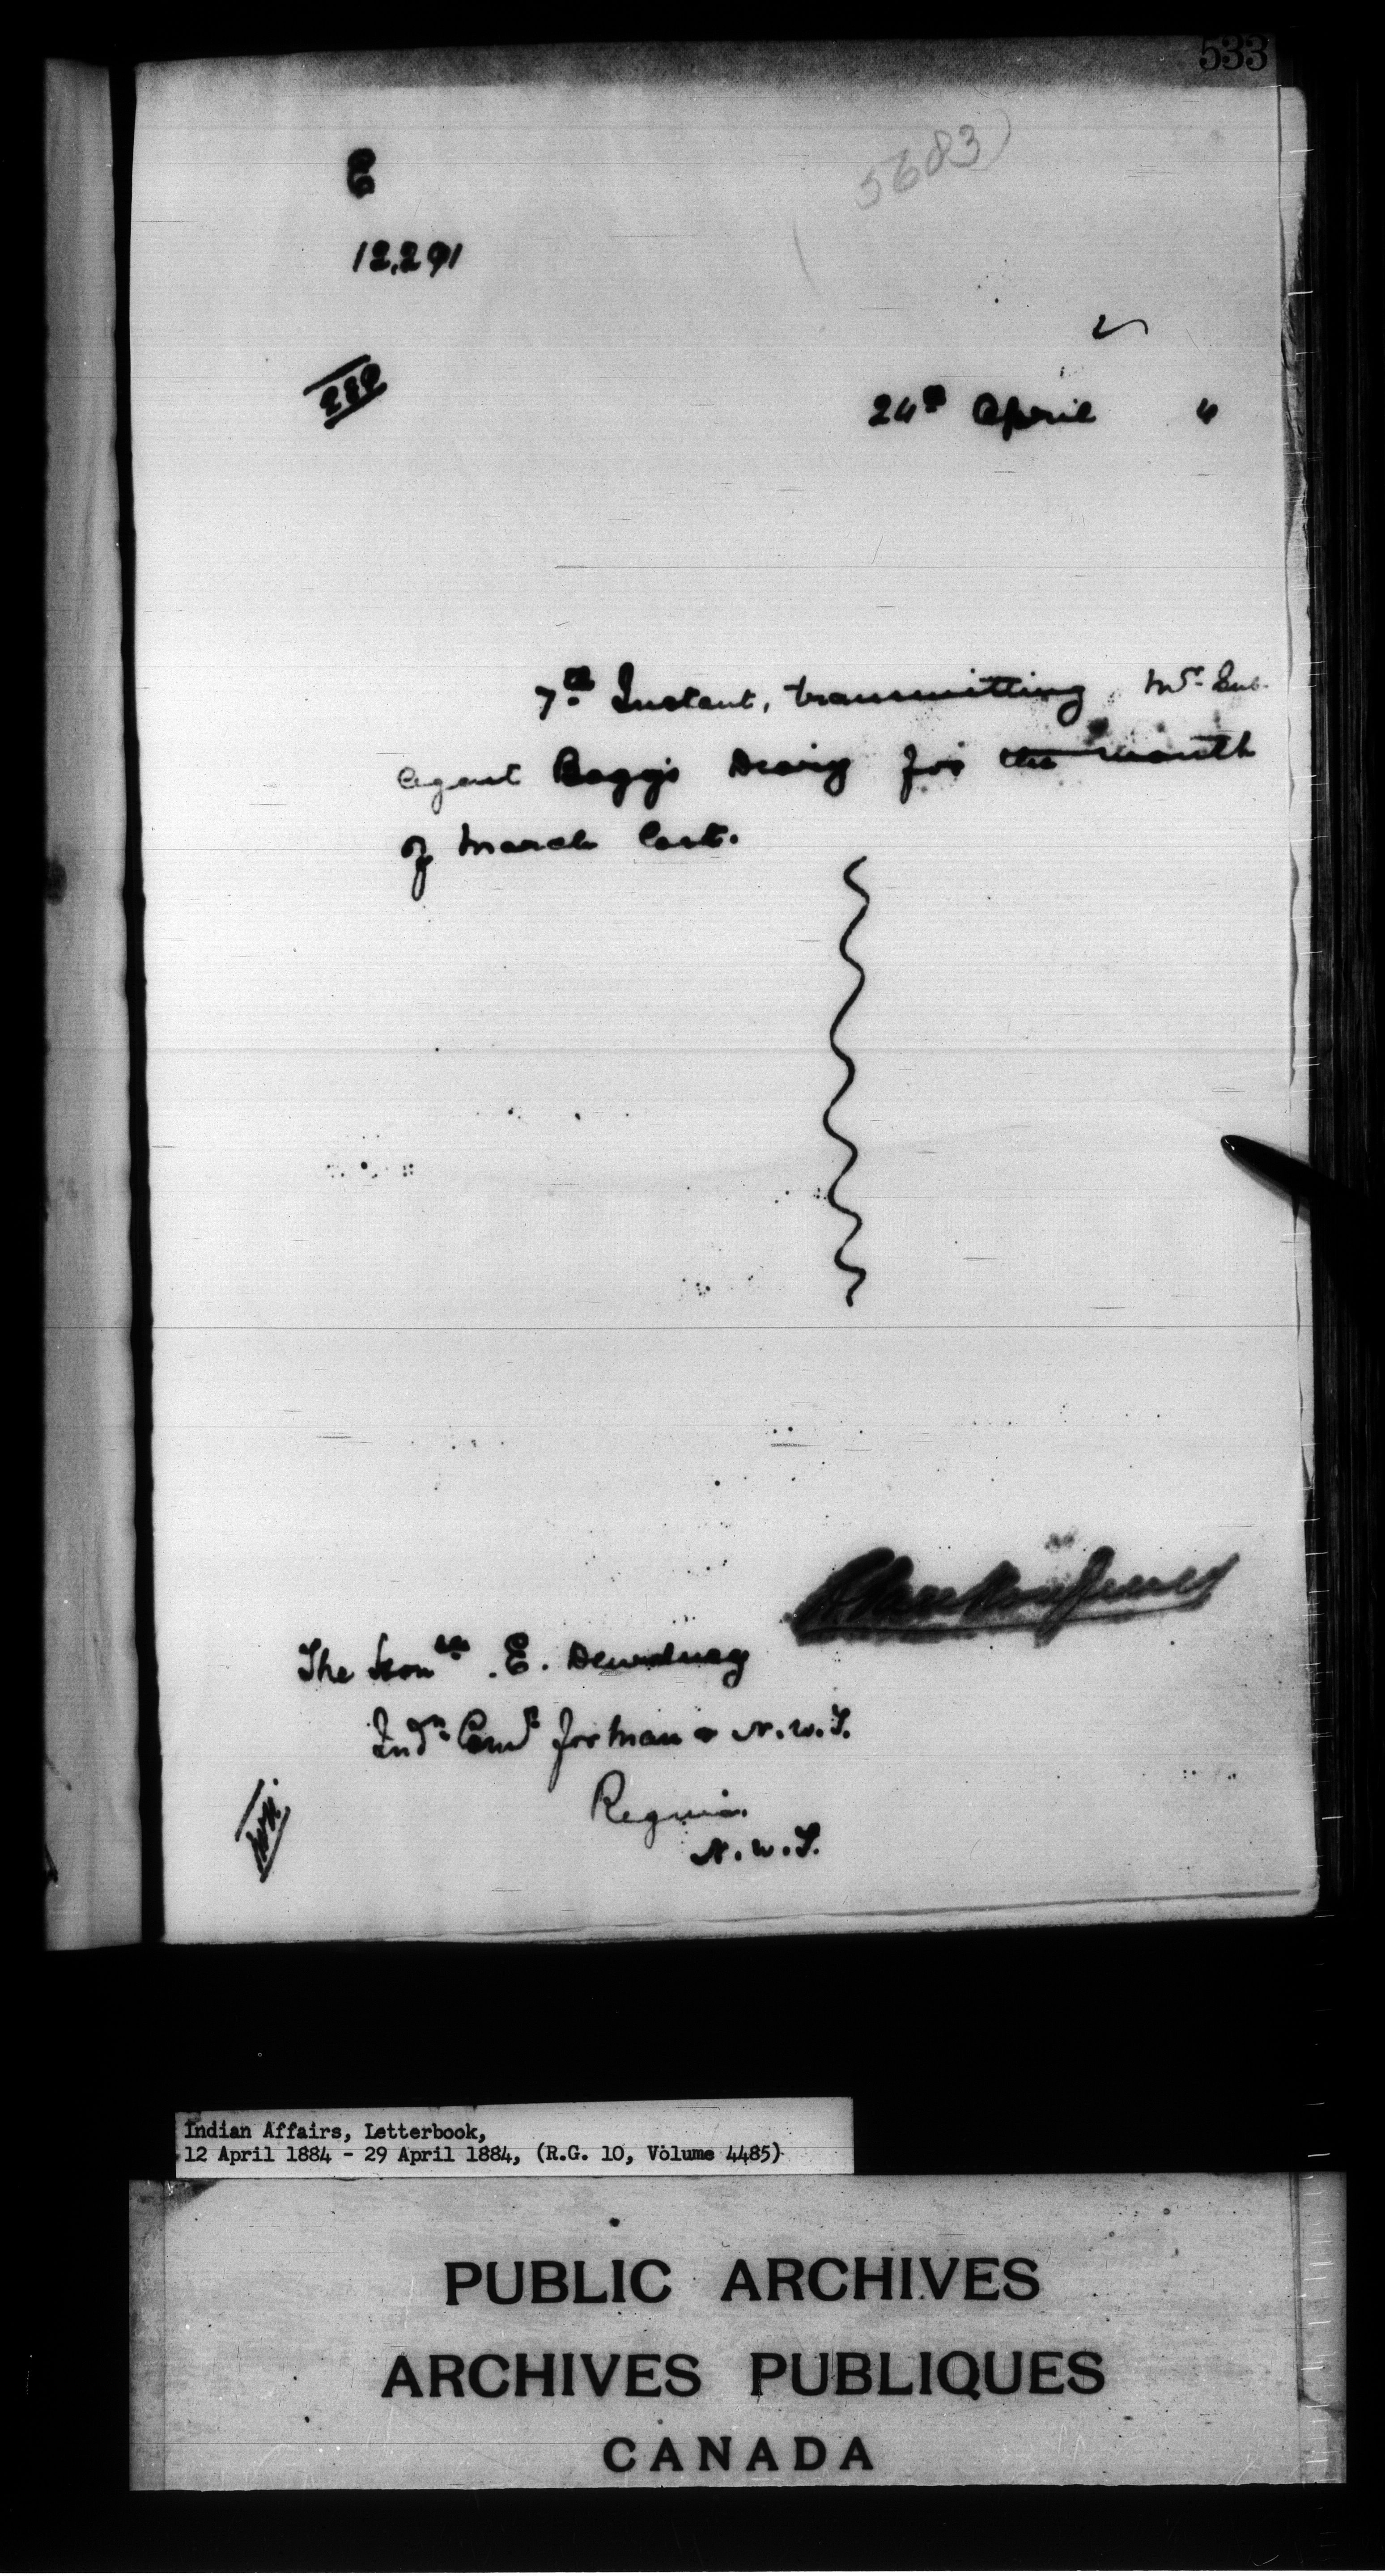 533
5683)
E
12,291
24th April "
7th Instant, transmitting Mr. Sub.
Agent Begg's Diary for the month
of March last.
The Honble. E. Dewdney
Indn. Comr for Man & N.W.T.
Regina.
N.W.T.
Indian Affairs, Letterbook,
12 April 1884 - 29 April 1884, (R.G. 10, Volume 4485)
PUBLIC ARCHIVES
ARCHIVES PUBLIQUES
CANADA